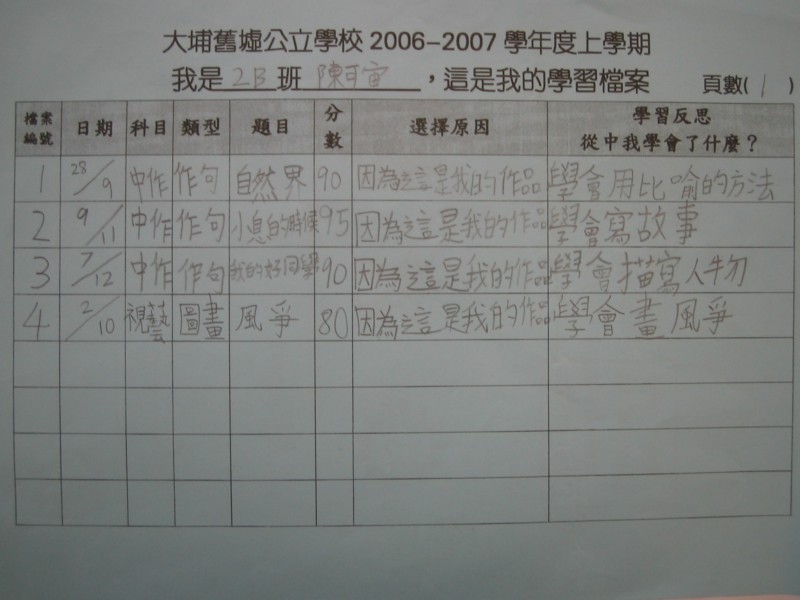 大埔舊墟公立學校 2006–2007 學年度上學期
我是 2B 班 陳可宙 ，這是我的學習檔案 頁數( 1 )
檔案編號 日期 科目 類型 題目 分數 選擇原因 學習反思 從中我學會了什麼？
1 28/9 中作 作句 自然界 90 因為這是我的作品 學會用比喻的方法
2 9/11 中作 作句 小息的時候 95 因為這是我的作品 學會寫故事
3 7/12 中作 作句 我的好同學 90 因為這是我的作品 學會描寫人物
4 2/10 視藝 圖畫 風爭 80 因為這是我的作品 學會畫風爭